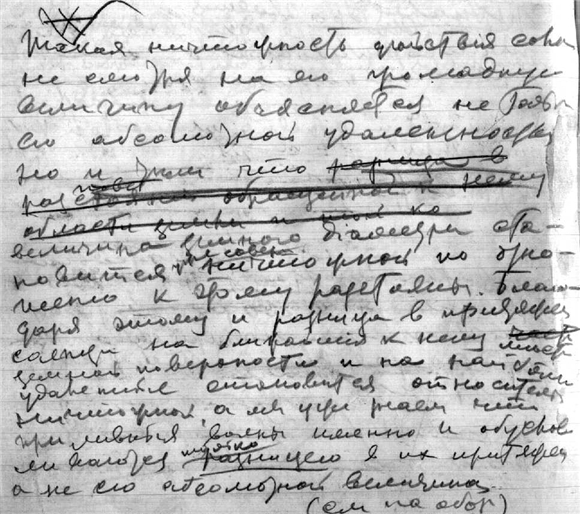 Такая ничтожность действия солн
не смотря на его громадную
величину объясняется не только
его абсолютной удаленностью
но и тем что разница в
рас обращенной к нему
области земли и
величина земного диаметра ста-
новится ничтожной по отно-
шению к этому расстоянию. Благо-
даря этому и разница в притяжен
солнца на ближайшей к нему
земной поверхности и на наиболее
удаленной становится относительно
ничтожной, а мы уже знаем что
приливные волны именно и обуслов
ливаются только разницею в их притяжен
а не его абсолютной величиной.
(см на обор)